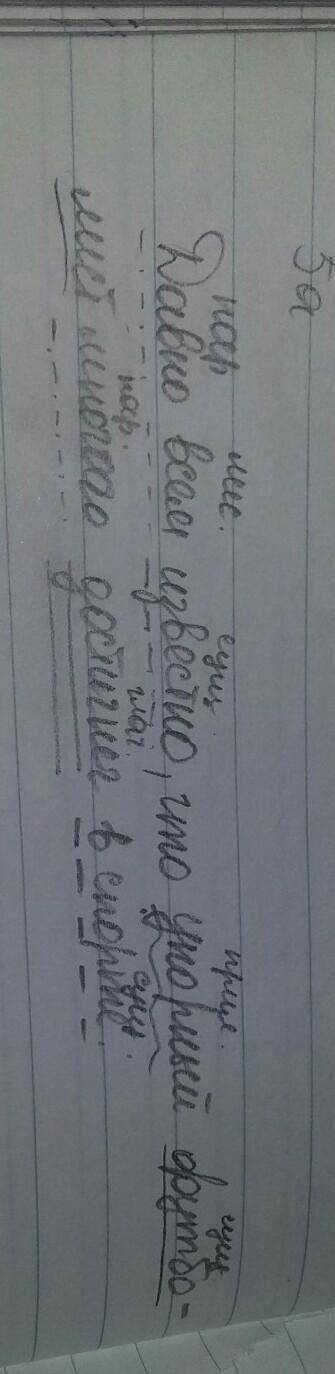 нар мес. сущ. прил. сущ
Давно всем известно, что упорный футбо-
нар. глаг. сущ.
лист многого достигнет в спорте.